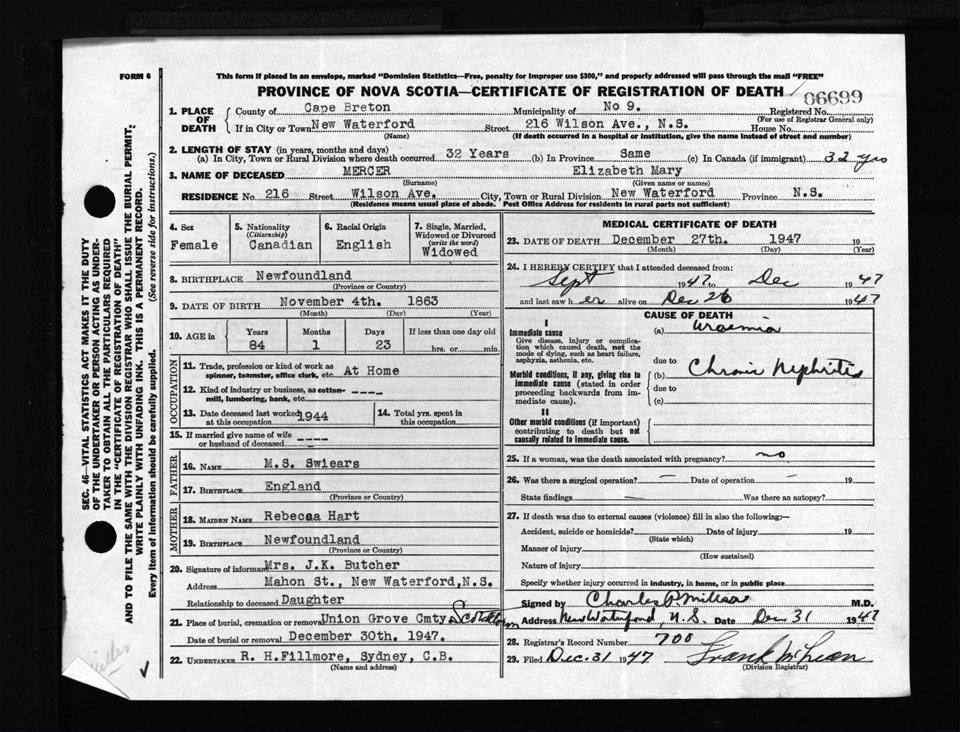 FORM 6
This form if placed in an envelope, marked "Dominion Statistics—Free, penalty for improper use $300," and properly addressed will pass through the mail "FREE"
PROVINCE OF NOVA SCOTIA—CERTIFICATE OF REGISTRATION OF DEATH
06699
1. PLACE OF DEATH
County of Cape Breton Municipality of No 9. Registered No.
(For use of Registrar General only)
If in City or Town New Waterford Street 216 Wilson Ave., N.S. House No.
(Name) (If death occurred in a hospital or institution, give the name instead of street and number)
2. LENGTH OF STAY (in years, months and days)
(a) In City, Town or Rural Division where death occurred 32 Years (b) In Province Same (c) In Canada (if immigrant) 32 yrs
3. NAME OF DECEASED MERCER Elizabeth Mary
(Surname) (Given name or names)
RESIDENCE No. 216 Street Wilson Ave. City, Town or Rural Division New Waterford Province N.S.
(Residence means usual place of abode. Post Office Address for residents in rural parts not sufficient)
4. Sex
Female
5. Nationality
(Citizenship)
Canadian
6. Racial Origin
English
7. Single, Married, Widowed or Divorced
(write the word)
Widowed
8. BIRTHPLACE Newfoundland
(Province or Country)
9. DATE OF BIRTH November 4th. 1863
(Month) (Day) (Year)
10. AGE in Years Months Days If less than one day old
84 1 23 hrs. or min.
OCCUPATION
11. Trade, profession or kind of work as spinner, teamster, office clerk, etc. At Home
12. Kind of industry or business, as cotton-mill, lumbering, bank, etc. ----
13. Date deceased last worked at this occupation 1944
14. Total yrs. spent in this occupation
15. If married give name of wife or husband of deceased ----
FATHER
16. NAME M.S. Swiears
17. BIRTHPLACE England
(Province or Country)
MOTHER
18. MAIDEN NAME Rebecca Hart
19. BIRTHPLACE Newfoundland
(Province or Country)
20. Signature of informant Mrs. J.K. Butcher
Address Mahon St., New Waterford, N.S.
Relationship to deceased Daughter
21. Place of burial, cremation or removal Union Grove Cmty. Scotchtown
Date of burial or removal December 30th. 1947.
22. UNDERTAKER R. H. Fillmore, Sydney, C.B.
(Name and address)
MEDICAL CERTIFICATE OF DEATH
23. DATE OF DEATH December 27th. 1947 19
(Month) (Day) (Year)
24. I HEREBY CERTIFY that I attended deceased from:
Sept 1947 to Dec 1947
and last saw her alive on Dec 26 1947
CAUSE OF DEATH
I
Immediate cause
Give disease, injury or complication which caused death, not the mode of dying, such as heart failure, asphyxia, asthenia, etc.
(a) Uraemia
due to
Morbid conditions, if any, giving rise to immediate cause (stated in order proceeding backwards from immediate cause).
(b) Chronic Nephritis
due to
(c)
II
Other morbid conditions (if important) contributing to death but not causally related to immediate cause.
25. If a woman, was the death associated with pregnancy? no
26. Was there a surgical operation? – Date of operation – 19
State findings — Was there an autopsy?
27. If death was due to external causes (violence) fill in also the following:—
Accident, suicide or homicide? Date of injury 19
(State which)
Manner of injury
(How sustained)
Nature of injury
Specify whether injury occurred in industry, in home, or in public place
Signed by Charles M.D.
Address New Waterford, N.S. Date Dec 31 1947
28. Registrar's Record Number 700
29. Filed Dec. 31 1947 Frank McLean
(Division Registrar)
SEC. 46—VITAL STATISTICS ACT MAKES IT THE DUTY
OF THE UNDERTAKER OR PERSON ACTING AS UNDER-
TAKER TO OBTAIN ALL THE PARTICULARS REQUIRED
IN THE "CERTIFICATE OF REGISTRATION OF DEATH"
AND TO FILE THE SAME WITH THE DIVISION REGISTRAR WHO SHALL ISSUE THE BURIAL PERMIT.
WRITE PLAINLY WITH UNFADING INK. THIS IS A PERMANENT RECORD.
Every item of information should be carefully supplied. (See reverse side for instructions.)